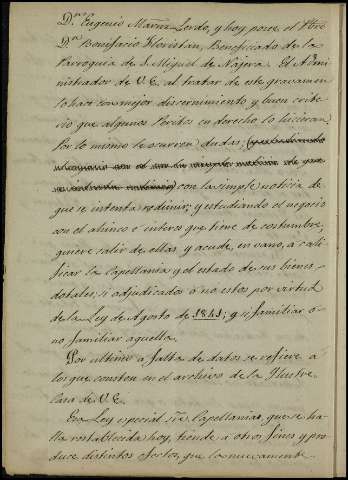 D.ⁿ Eugenio Lordo, y hoy posee el Pbro
D.ⁿ Bonifacio Floristan, Beneficado de la
Parroquia de S. Miguel de Najera. El Admi
nistrador de V.E. al tratar de este gravamen
lo hace con mejor discernimiento y buen crite
rio que algunos Peritos en derecho lo hicieran.
Por lo mismo le ocurren dudas,
con la simple noticia de
que se intenta redimir; y estudiando el negocio
con el ahinco e interes que tiene de costumbre,
quiere salir de ellas y acude, en vano, á cali
ficar la Capellania y el estado de sus bienes
dotales; si adjudicados o no estos por virtud
de la Ley de Agosto de 1841; y si familiar o
no familiar aquella.
Por ultimo á falta de datos se refiere á
los que consten en el archivo de la Ilustre
Casa de V.E.
La Ley especial sře Capellanias, que se ha
lla restablecida hoy, tiende á otros fines y pro
duce distintos efectos, que los meramente